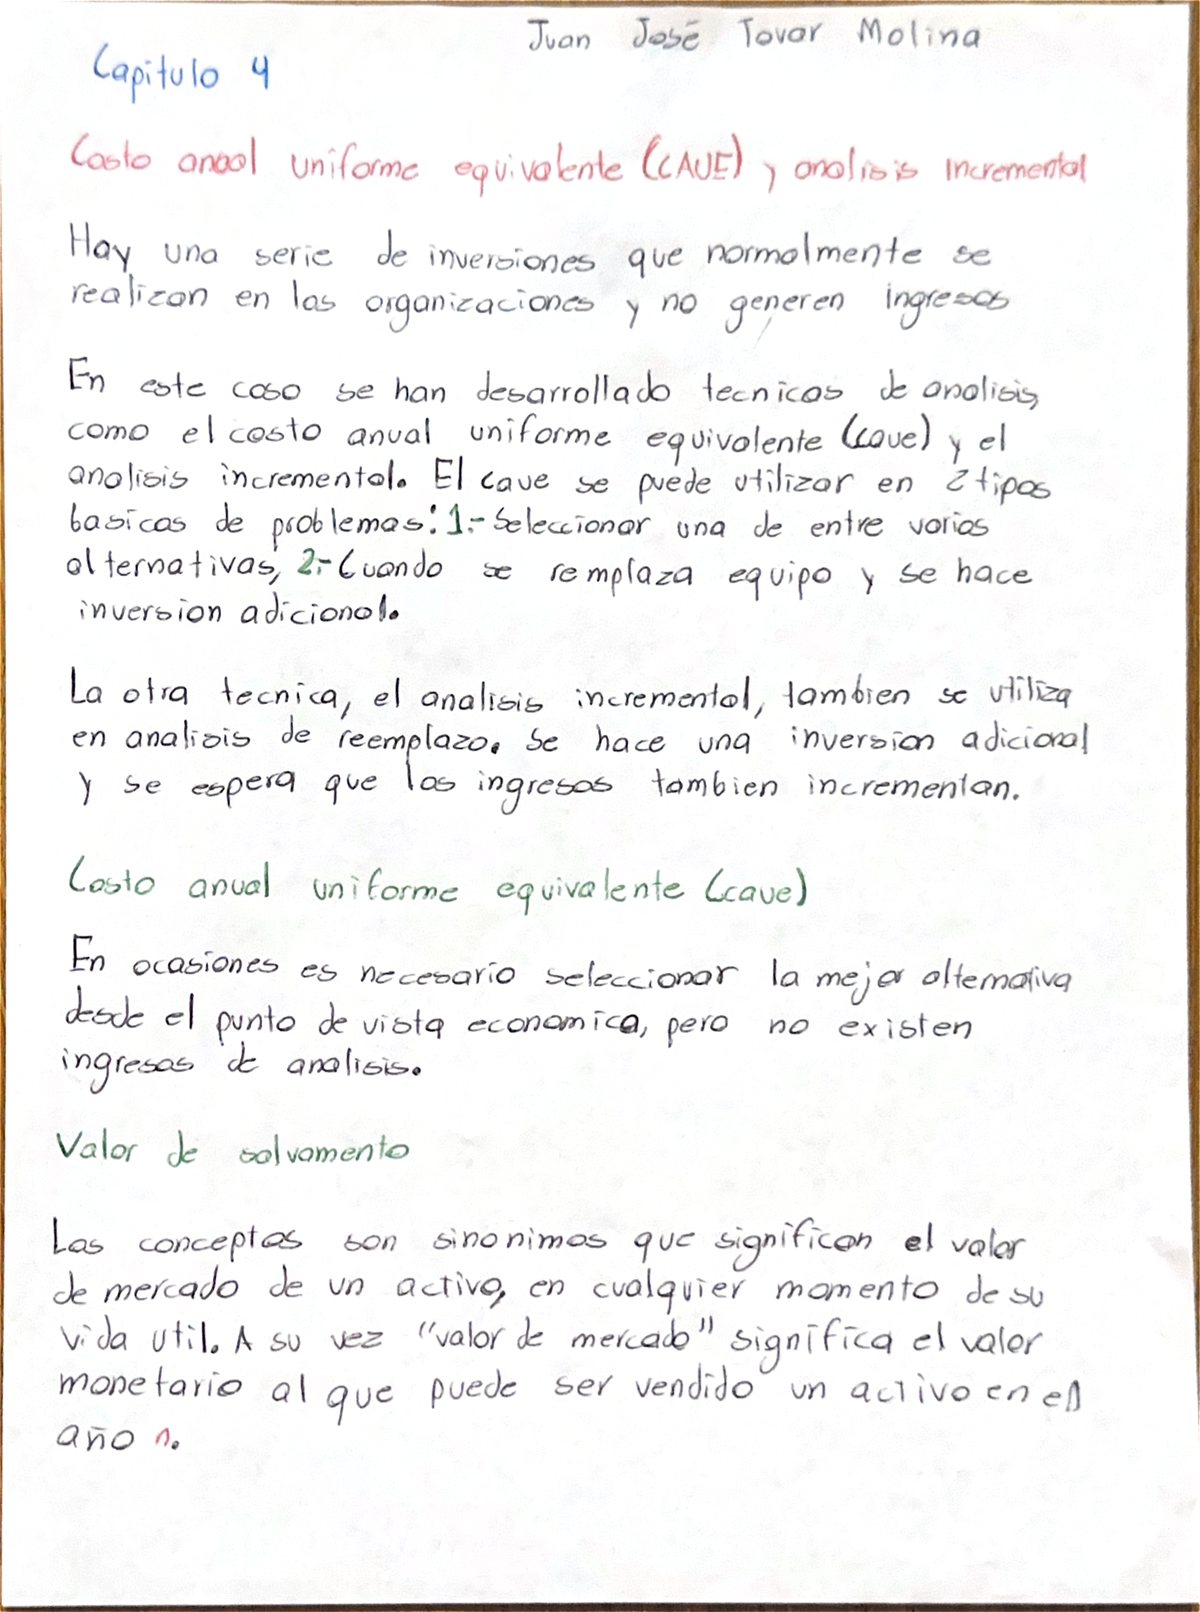 Juan José Tovar Molina
Capitulo 4
Costo anaol uniforme equivalente (CAUE) y analisis Incremental
Hay una serie de inversiones que normalmente se
realizan en las organizaciones y no generen ingresos
En este caso se han desarrollado tecnicas de analisis,
como el costo anual uniforme equivalente (caue) y el
analisis incremental. El caue se puede utilizar en 2 tipos
basicos de problemas: 1.- Seleccionar una de entre varias
alternativas, 2.- Cuando se remplaza equipo y se hace
inversion adicional.
La otra tecnica, el analisis incremental, tambien se utiliza
en analisis de reemplazo. Se hace una inversion adicional
y se espera que los ingresos tambien incrementan.
Costo anual uniforme equivalente (caue)
En ocasiones es necesario seleccionar la mejor alternativa
desde el punto de vista economica, pero no existen
ingresos de analisis.
Valor de salvamento
Los conceptos son sinonimos que significan el valor
de mercado de un activo, en cualquier momento de su
vida util. A su vez "valor de mercado" significa el valor
monetario al que puede ser vendido un activo en el
año n.